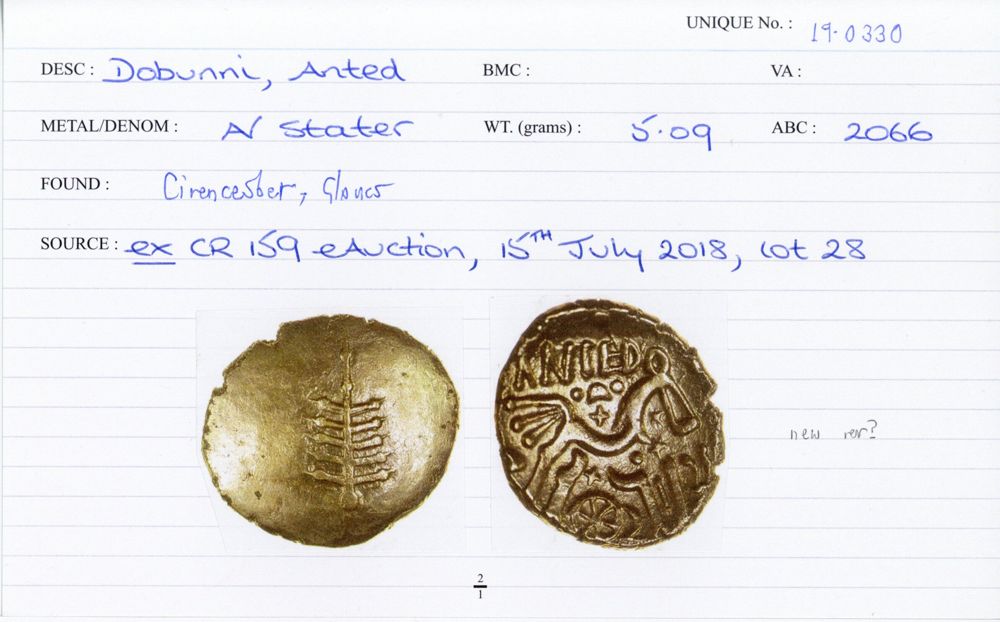 UNIQUE No. : 19.0330
DESC : Dobunni, Anted BMC : VA :
METAL/DENOM : AV Stater WT. (grams) : 5.09 ABC : 2066
FOUND : Cirencester, Gloucs
SOURCE : ex CR 159 eAuction, 15TH July 2018, lot 28
ANTEDO
new rev?
2
1